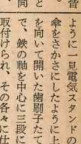 ように一見電気スタンドの
傘をさかさにしたように
を向いて開いた歯朶子たて
で、鉄の軸を中心に三段
取付けられ、その各々に仕